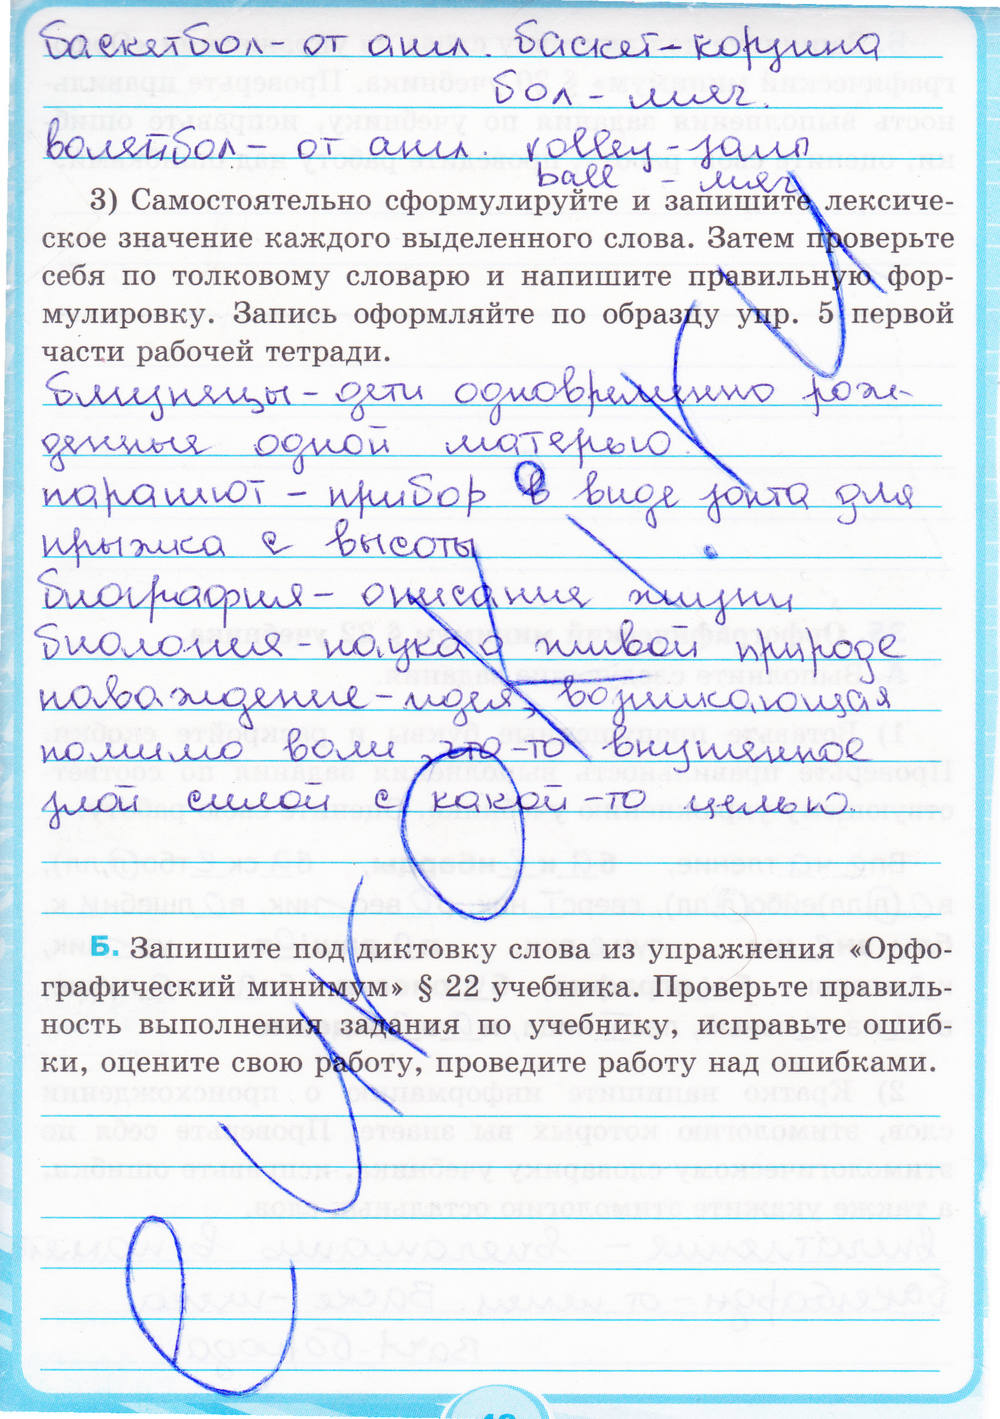 баскетбол - от англ. баскет - корзина
бол - мяч.
волейбол - от англ. volley - залп
ball - мяч
3) Самостоятельно сформулируйте и запишите лексиче-
ское значение каждого выделенного слова. Затем проверьте
себя по толковому словарю и напишите правильную фор-
мулировку. Запись оформляйте по образцу упр. 5 первой
части рабочей тетради.
близнецы - дети одновременно рож-
денные одной матерью.
парашют - прибор в виде зонта для
прыжка с высоты
биография - описание жизни
биология - наука о живой природе
наваждение - идея, возникающая
помимо воли, что-то внушенное
злой силой с какой-то целью.
Б. Запишите под диктовку слова из упражнения «Орфо-
графический минимум» § 22 учебника. Проверьте правиль-
ность выполнения задания по учебнику, исправьте ошиб-
ки, оцените свою работу, проведите работу над ошибками.